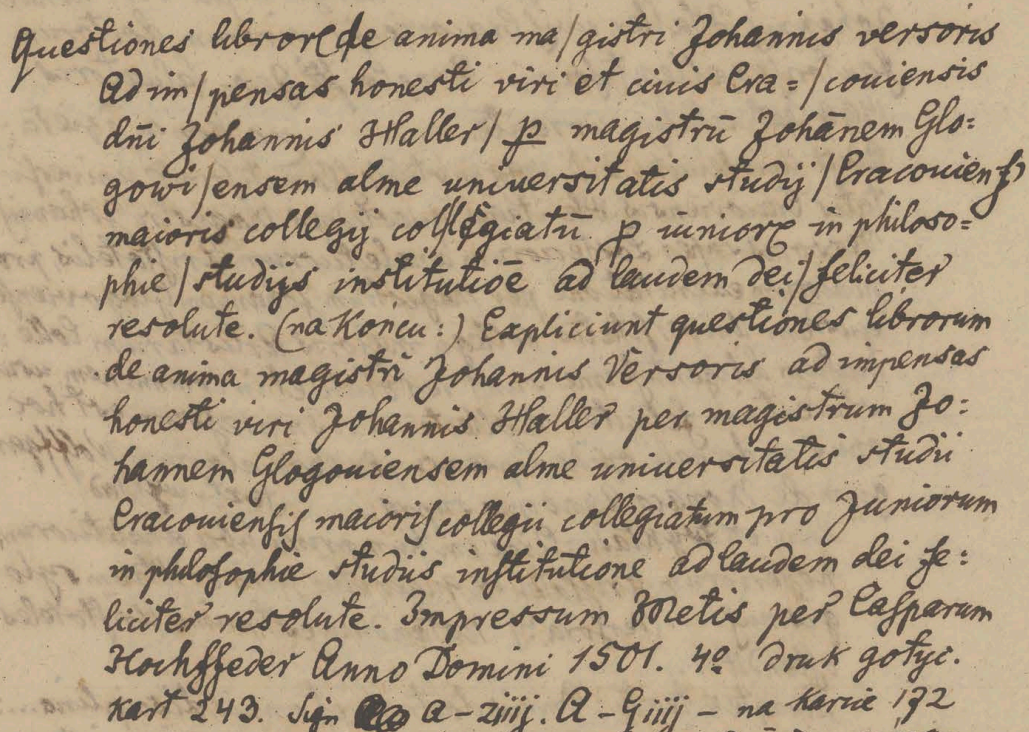 Questiones librorꝝ de anima ma/gistri Johannis versoris
ad im/pensas honesti viri et ciuis Cra=/couiensis
dñi Johannis Haller/ ꝑ magistrū Johānem Glo:
gowi/ensem alme uniuersitatis studij/Cracouienẜ
maioris collegij collegiatū ꝓ iuniorꝝ in philoso=
phie/studijs institutiōe ad laudem dei/feliciter
resolute. (na końcu:) Expliciunt questiones librorum
de anima magistri Johannis Versoris ad impensas
honesti viri Johannis Haller per magistrum Jo:
hannem Glogouiensem alme uniuersitatis studii
Cracouienſis maioriſ collegii collegiatum pro Juniorum
in philoſophie studiis inſtitutione ad laudem dei fe:
liciter resolute. Impressum Metis per Caſparum
Hochffeder Anno Domini 1501. 4º druk gotyc.
kart 243. Sign a-ziiij. A-Giiij - na karcie 172